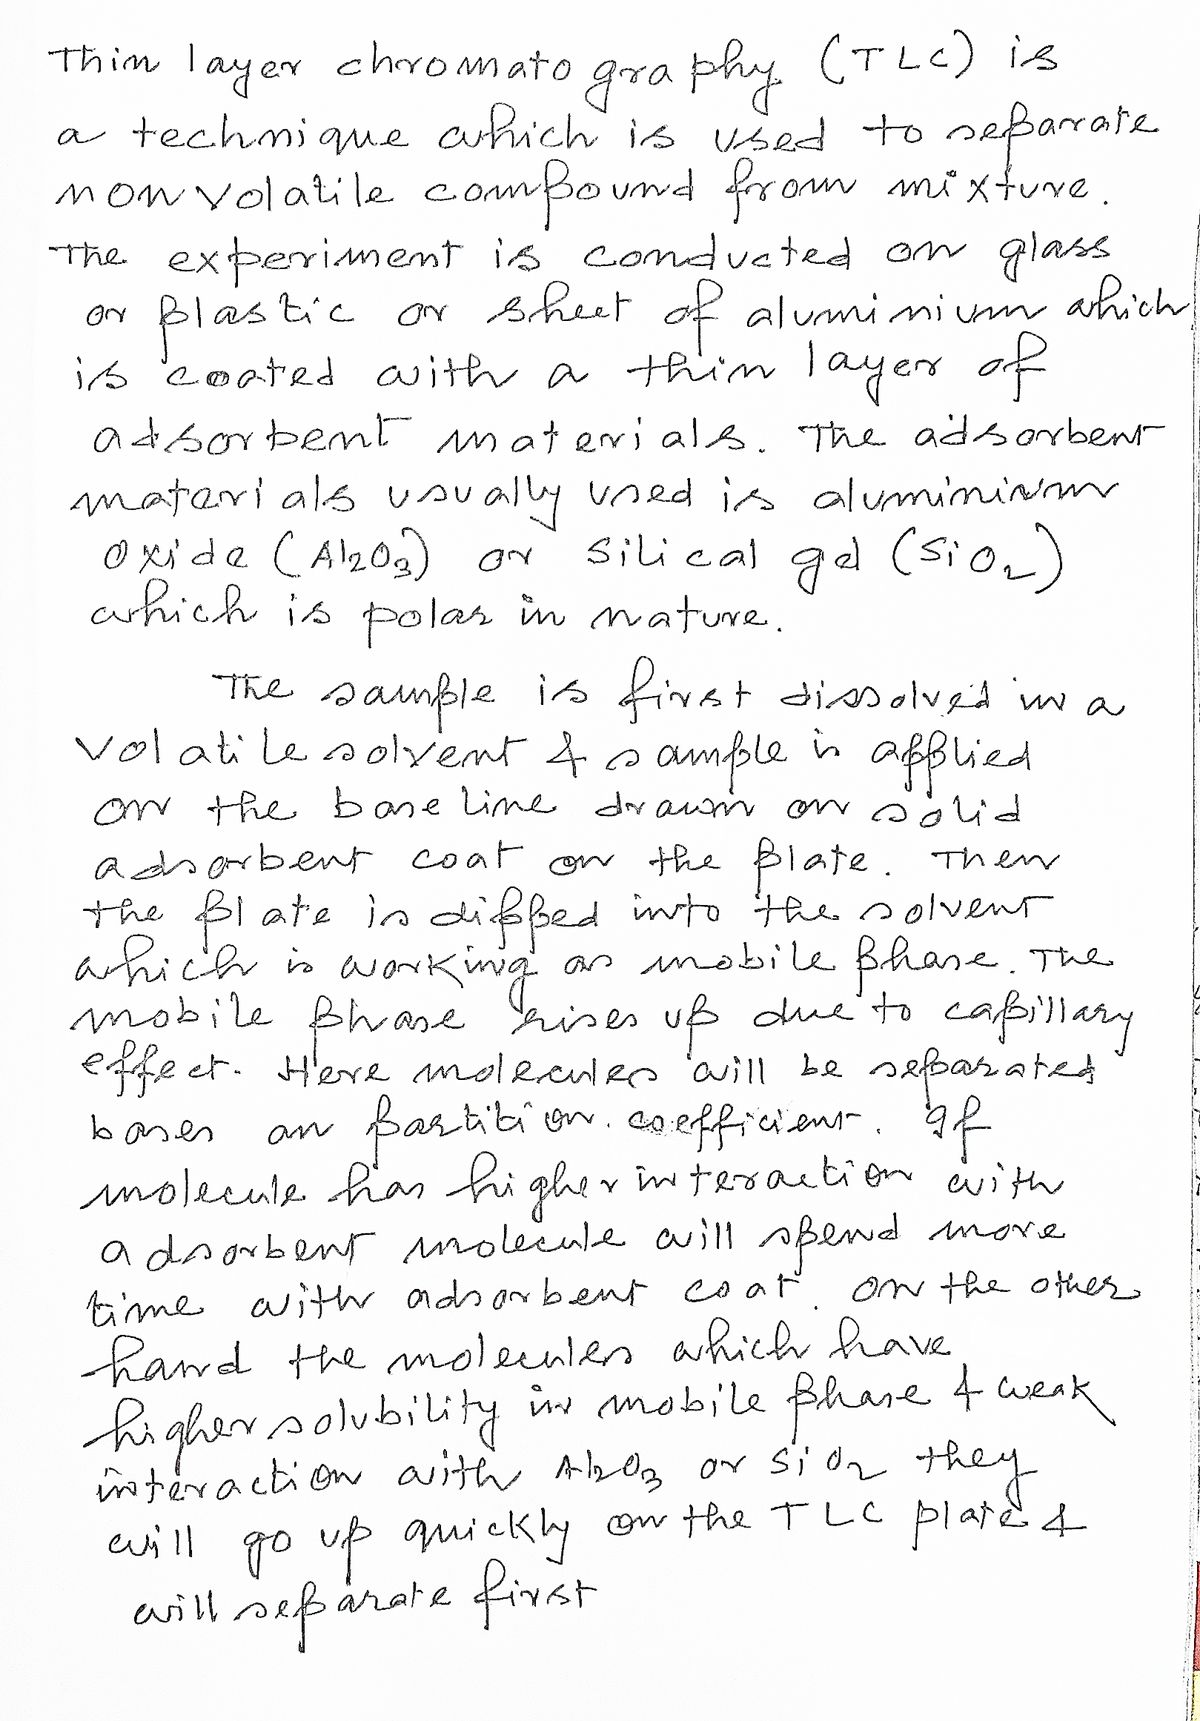 Thin layer chromatography (TLC) is
a technique which is used to separate
non volatile compound from mixture.
The experiment is conducted on glass
or plastic or sheet of aluminium which
is coated with a thin layer of
adsorbent materials. The adsorbent
materials usually used is aluminium
oxide (Al2O3) or Silical gel (SiO2)
which is polar in nature.
The sample is first dissolved in a
volatile solvent & sample is applied
on the base line drawn on solid
adsorbent coat on the plate. Then
the plate is dipped into the solvent
which is working as mobile phase. The
mobile phase rises up due to capillary
effect. Here molecules will be separated
bases on partition coefficient. If
molecule has higher interaction with
adsorbent molecule will spend more
time with adsorbent coat. On the other
hand the molecules which have
higher solubility in mobile phase & weak
interaction with Al2O3 or SiO2 they
will go up quickly on the TLC plate &
will separate first